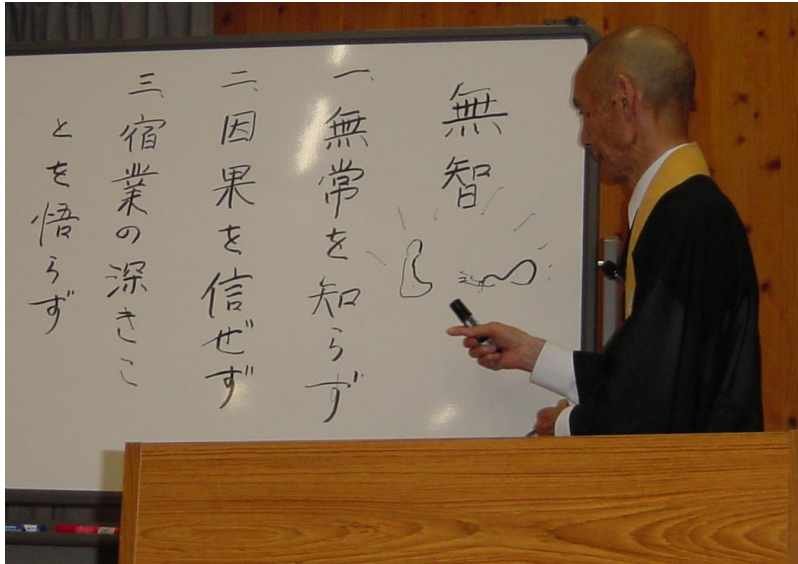 無智
一、無常を知らず
二、因果を信ぜず
三、宿業の深きこ
とを悟らず